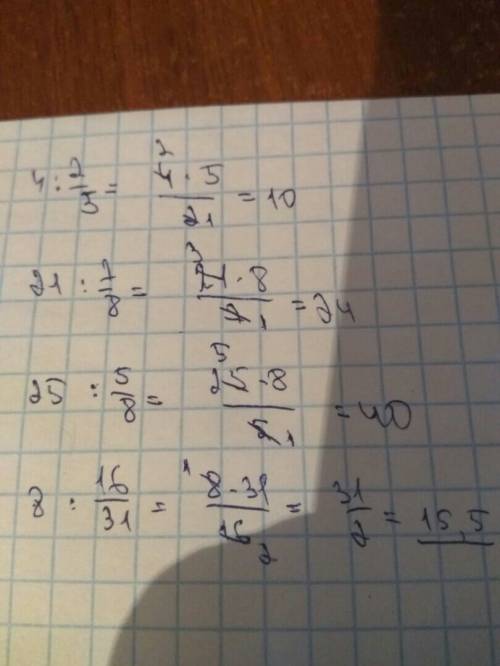 4 : 2/5 = 4 · 5 / 2 = 10
21 : 7/8 = 21 · 8 / 7 = 24
25 : 5/8 = 25 · 8 / 5 = 40
8 : 16/31 = 8 · 31 / 16 = 31/2 = 15,5